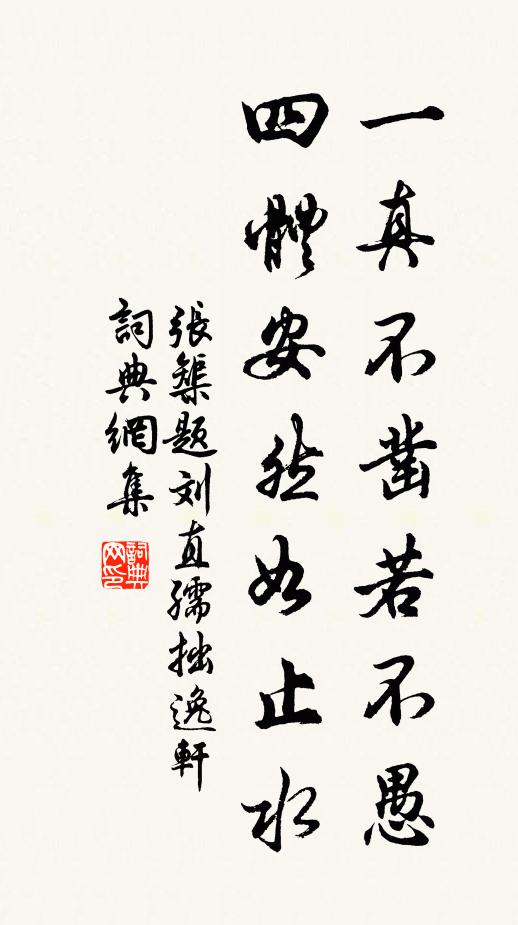 一真不凿若不愚
四體安然如止水
張榘题刘直孺拙逸軒
詞典網集
詞典网印